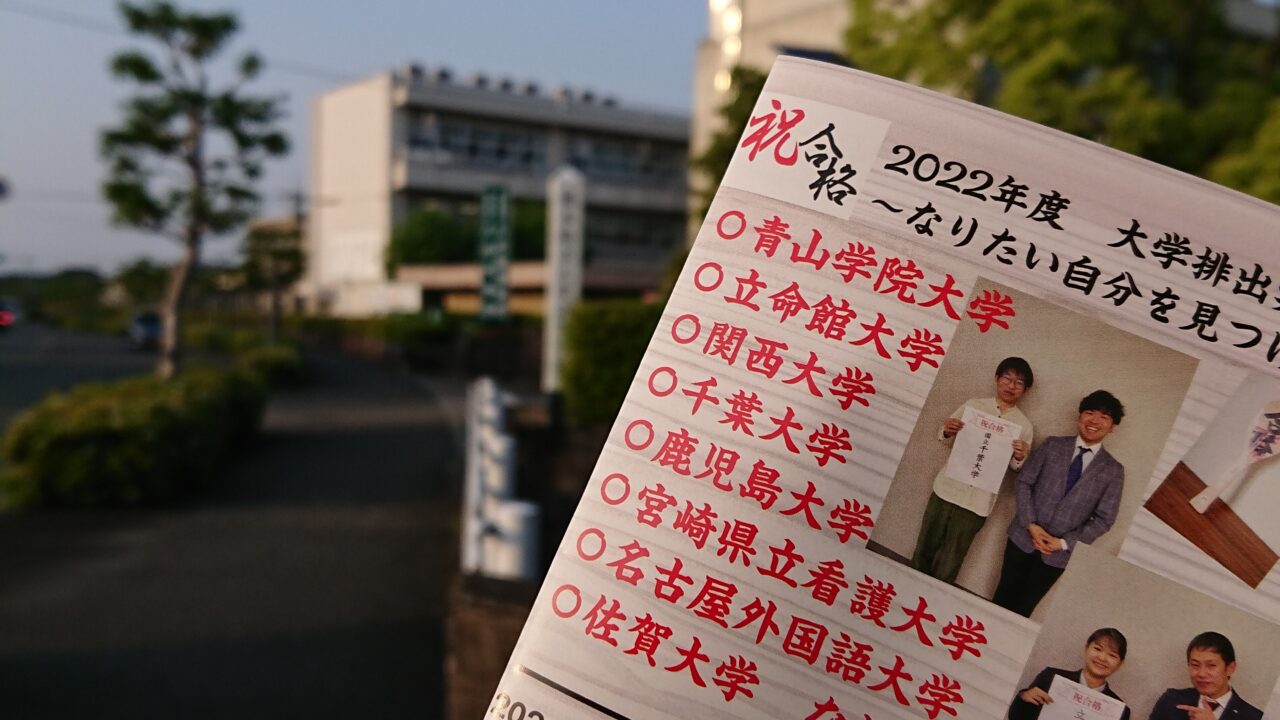 祝合格
2022年度 大学排出
～なりたい自分を見つ
○青山学院大学
○立命館大学
○関西大学
○千葉大学
○鹿児島大学
○宮崎県立看護大学
○名古屋外国語大学
○佐賀大学 な
祝合格
国立千葉大学
祝合格
立
202